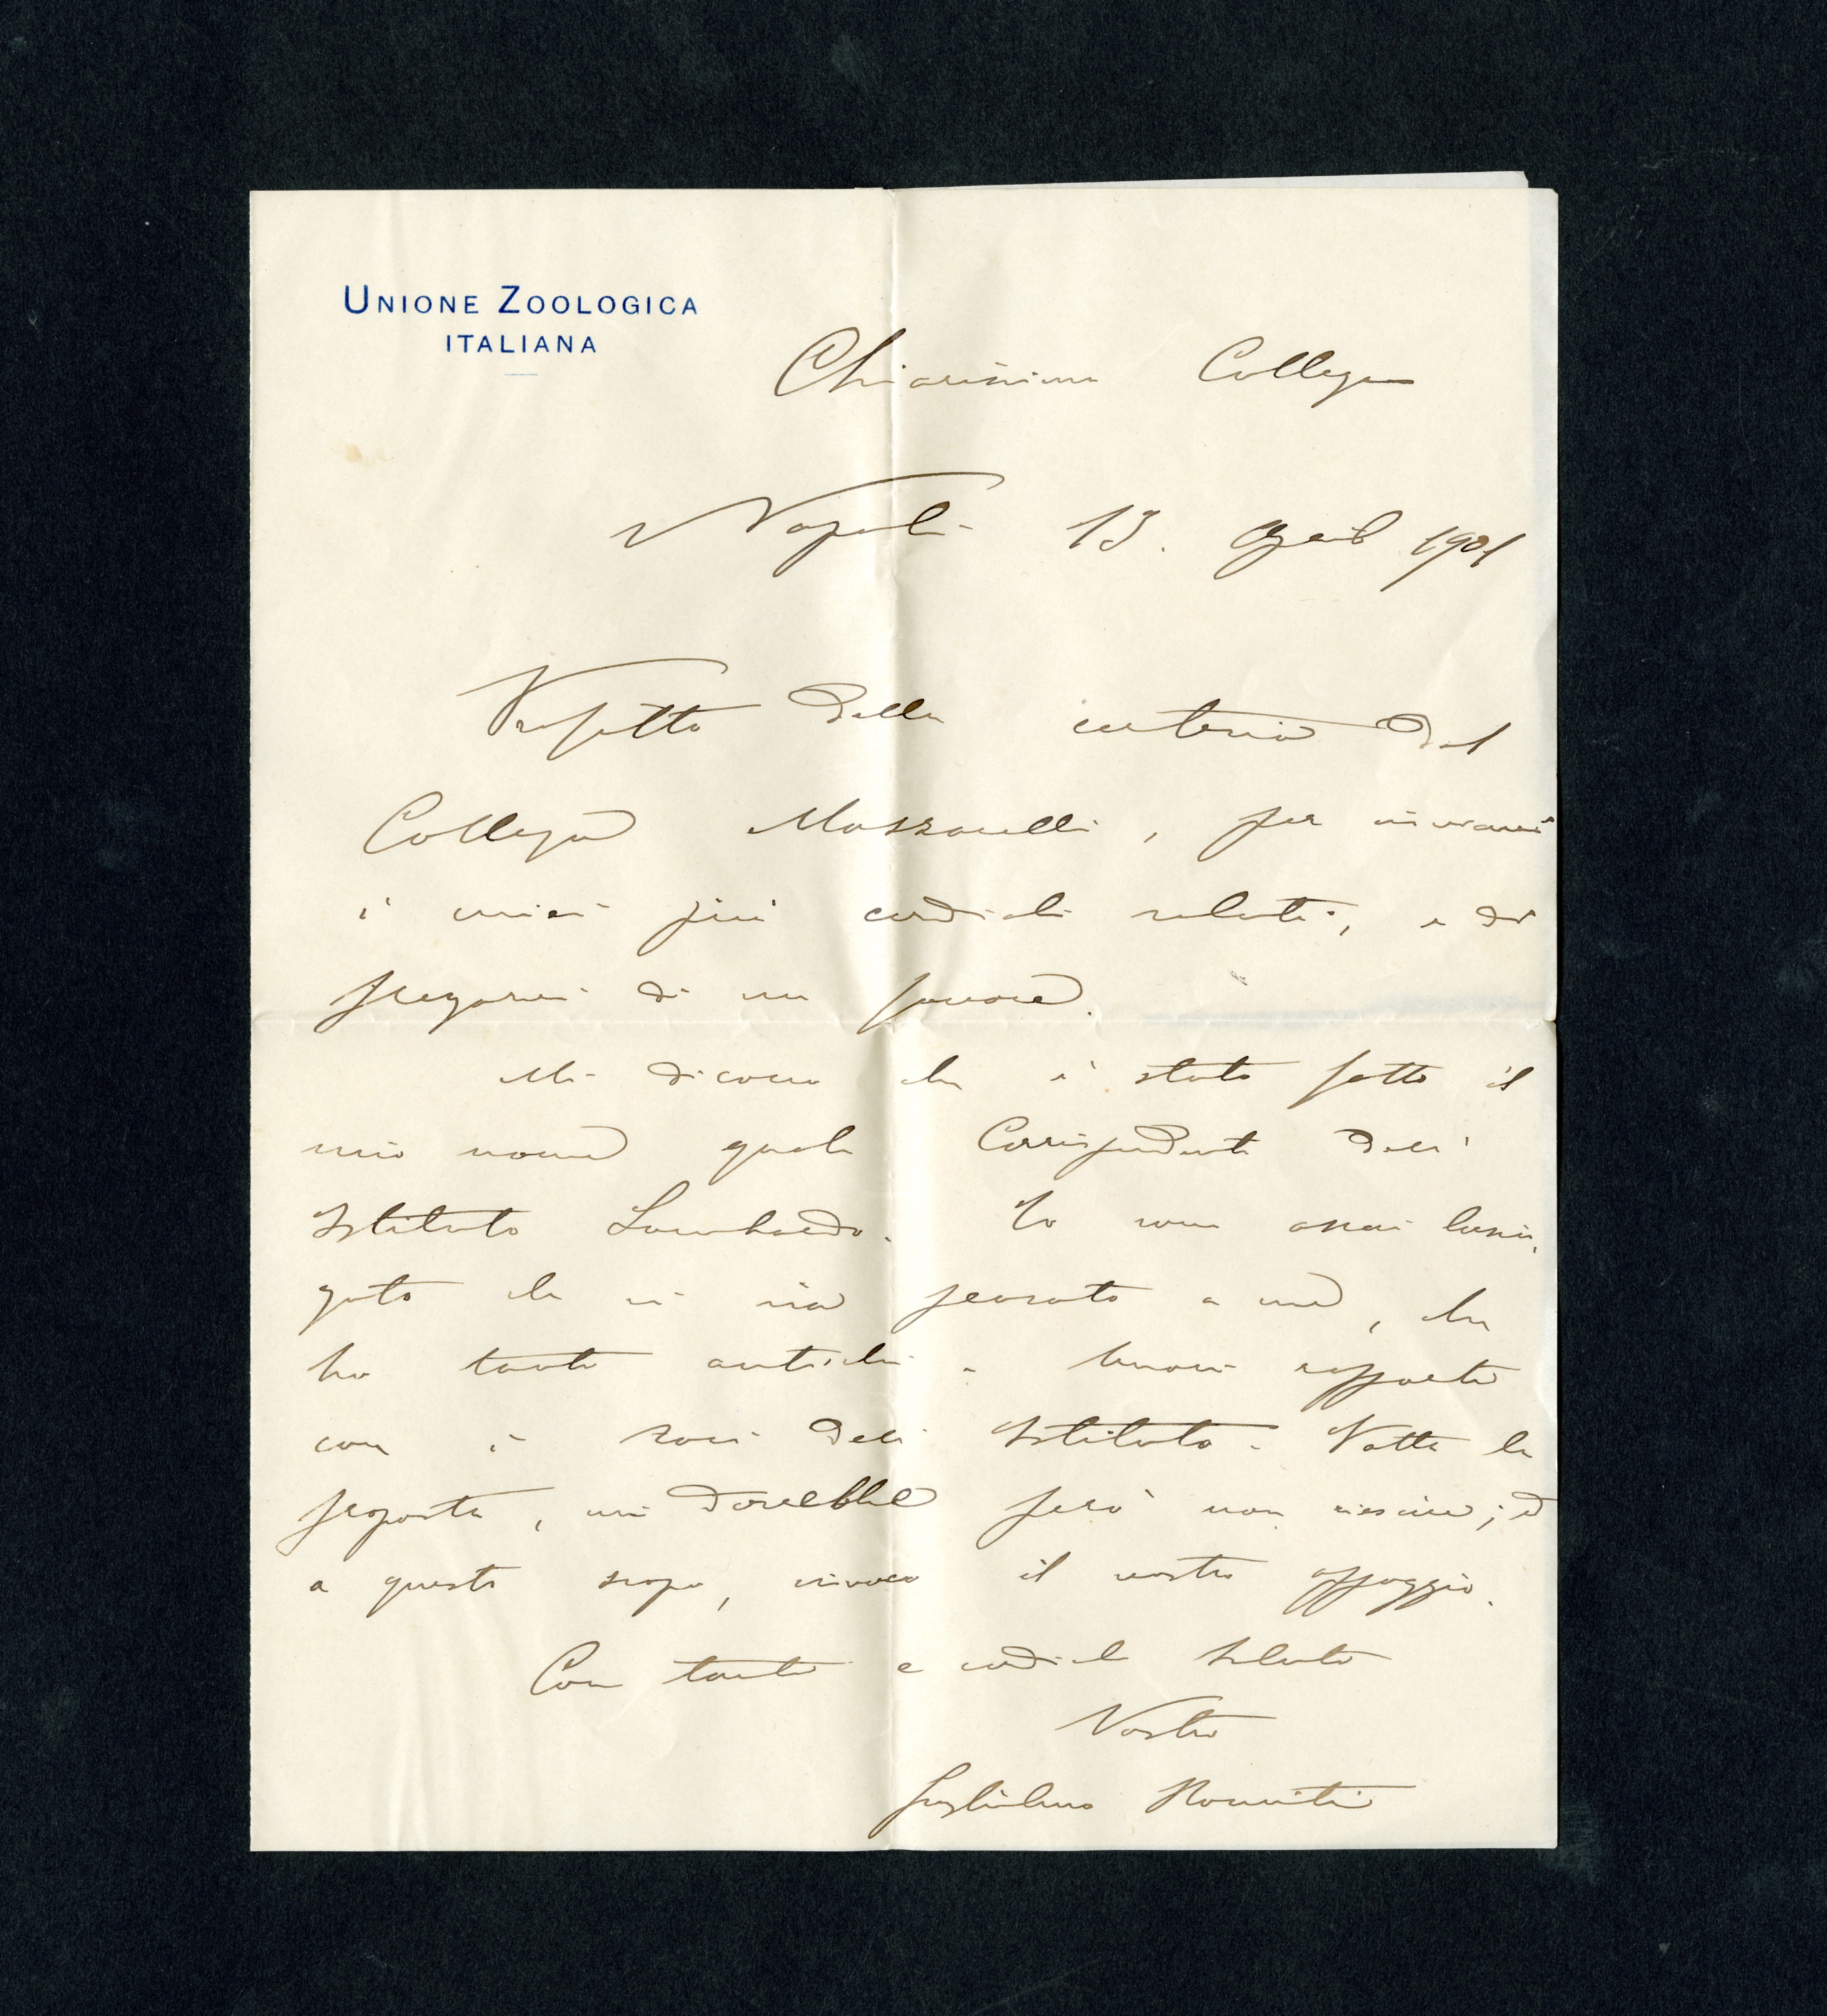 UNIONE ZOOLOGICA
ITALIANA
Chiarissimo Collega
Napoli 13. April 1901
Profitto della cortesia del
Collega Mazzarelli, per inviarvi
i miei più cordiali saluti, e di
pregarvi di un favore.
Mi dicono che è stato fatto il
mio nome quale Corrispondente dell'
Istituto Lombardo. Io sono assai lusin,
gato che si sia pensato a me, che
ho tanti antichi e buoni rapporti
con i soci dell' Istituto. Fatta la
proposta, mi dorrebbe però non riescire; e
a questo scopo, invoco il vostro appoggio.
Con tanti e cordiali saluti
Vostro
Guglielmo Romiti